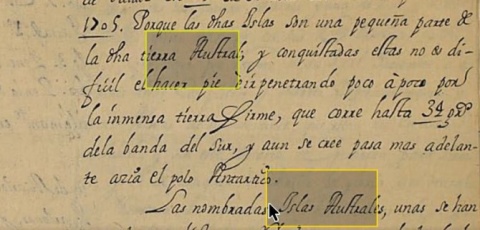 1705. Porque las dhas Islas son una pequeña parte de
la dha tierra Austral, y conquistadas estas no es di-
ficil el hacer pie penetrando poco à poco por
la inmensa tierra Firme, que corre hasta 34 grs
dela banda del Sur, y aun se cree pasa mas adelan-
te azia el polo Antartico.
Las nombradas Islas Australes, unas se han